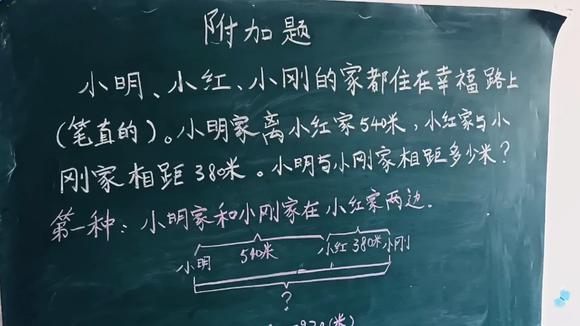 附加题
小明、小红、小刚的家都住在幸福路上
(笔直的)。小明家离小红家540米,小红家与小
刚家相距380米。小明与小刚家相距多少米?
第一种:小明家和小刚家在小红家两边.
小明 540米 小红 380米 小刚
?
(米)